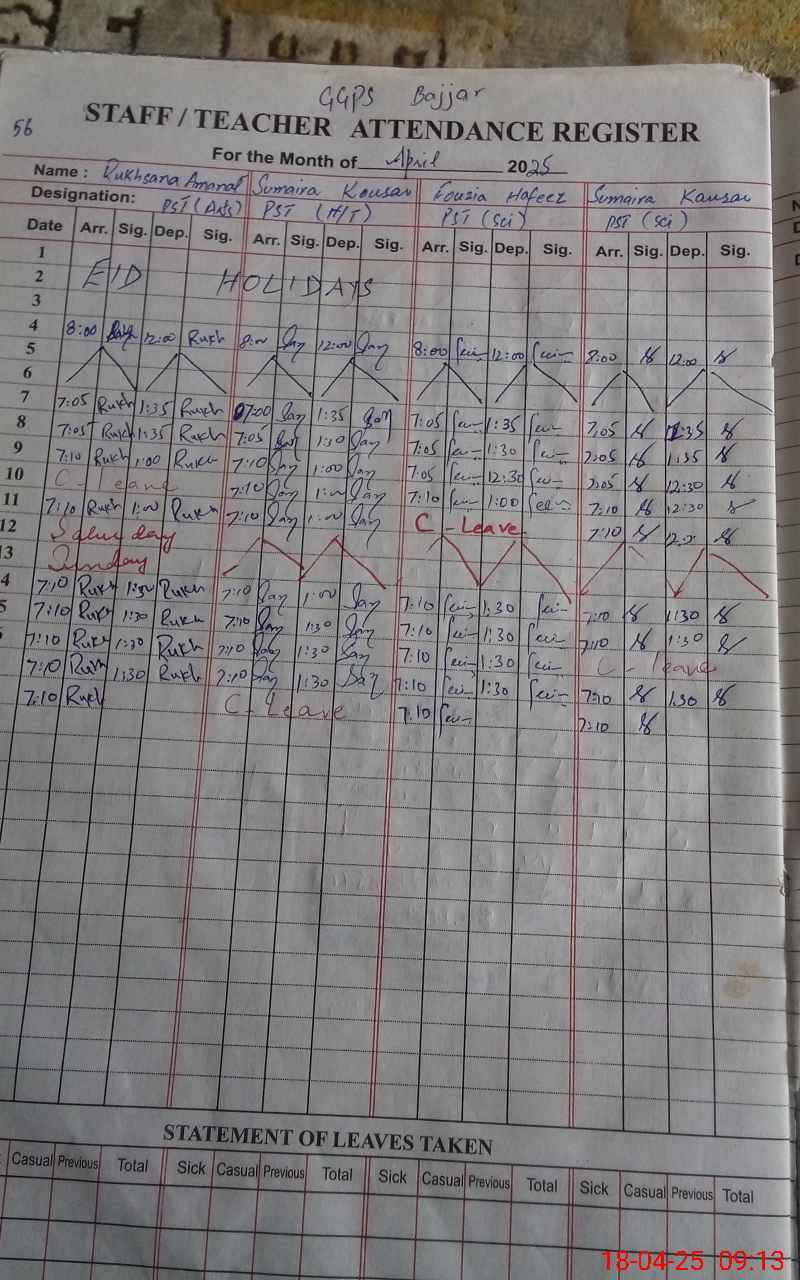 GGPS Bajjar
56
STAFF / TEACHER ATTENDANCE REGISTER
For the Month of April 2025
Name : Rukhsana Amanat Sumaira Kousar Fouzia Hafeez Sumaira Kausar
Designation: PST (Arts) PST (H/T) PST (Sci) PST (Sci)
Date Arr. Sig. Dep. Sig. Arr. Sig. Dep. Sig. Arr. Sig. Dep. Sig. Arr. Sig. Dep. Sig.
1
2 EID HOLIDAYS
3
4 8:00 12:00 Rukh 8:00 12:00 8:00 12:00 8:00 12:00
5
6
7 7:05 Rukh 1:35 Rukh 07:00 1:35 7:05 1:35 7:05 1:35
8 7:05 Rukh 1:35 Rukh 7:05 1:30 7:05 1:30 7:05 1:35
9 7:10 Rukh 1:00 Rukh 7:10 1:00 7:05 12:30 7:05 12:30
10 C - leave 7:10 1:00 7:10 1:00 7:10 12:30
11 7:10 Rukh 1:00 Rukh 7:10 1:00 C - Leave 7:10
12 Saturday
13 Sunday
4 7:10 Rukh 1:30 Rukh 7:10 1:00 7:10 1:30 7:10 1:30
5 7:10 Rukh 1:30 Rukh 7:10 1:30 7:10 1:30 7:10 1:30
7:10 Rukh 1:30 Rukh 7:10 1:30 7:10 1:30 C - leave
7:10 Rukh 1:30 Rukh 7:10 1:30 7:10 1:30 7:10 1:30
7:10 Rukh C - Leave 7:10 7:10
STATEMENT OF LEAVES TAKEN
Casual Previous Total Sick Casual Previous Total Sick Casual Previous Total Sick Casual Previous Total
18-04-25 09:13